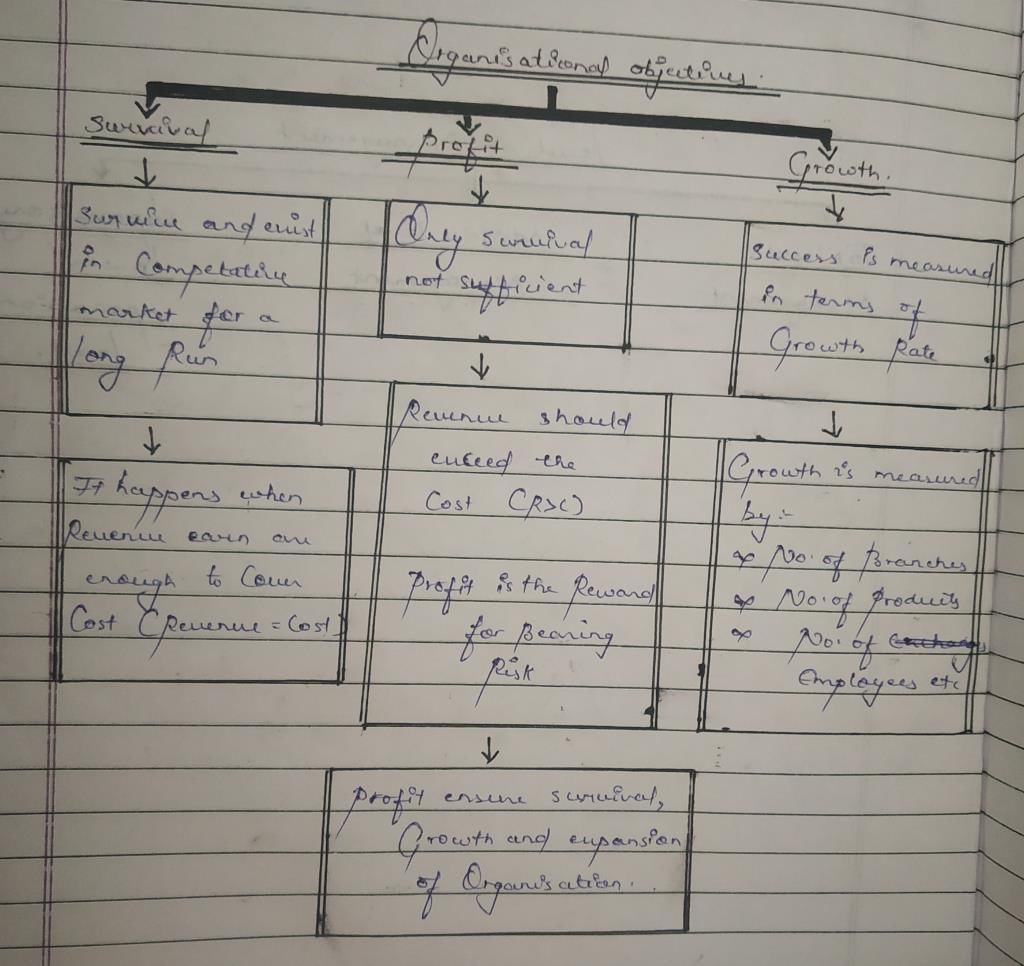 Organisational objectives.
Survival
Profit
Growth.
Survive and exist
in Competative
market for a
long Run
It happens when
Revenue earn are
enough to Cover
Cost (Revenue = Cost)
Only survival
not sufficient
Revenue should
exceed the
Cost (R>C)
Profit is the Reward
for Bearing
Risk
Profit ensure survival,
Growth and expansion
of Organisation.
Success is measured
in terms of
Growth Rate
Growth is measured
by:-
* No. of Branches
* No. of Products
* No. of
Employees etc